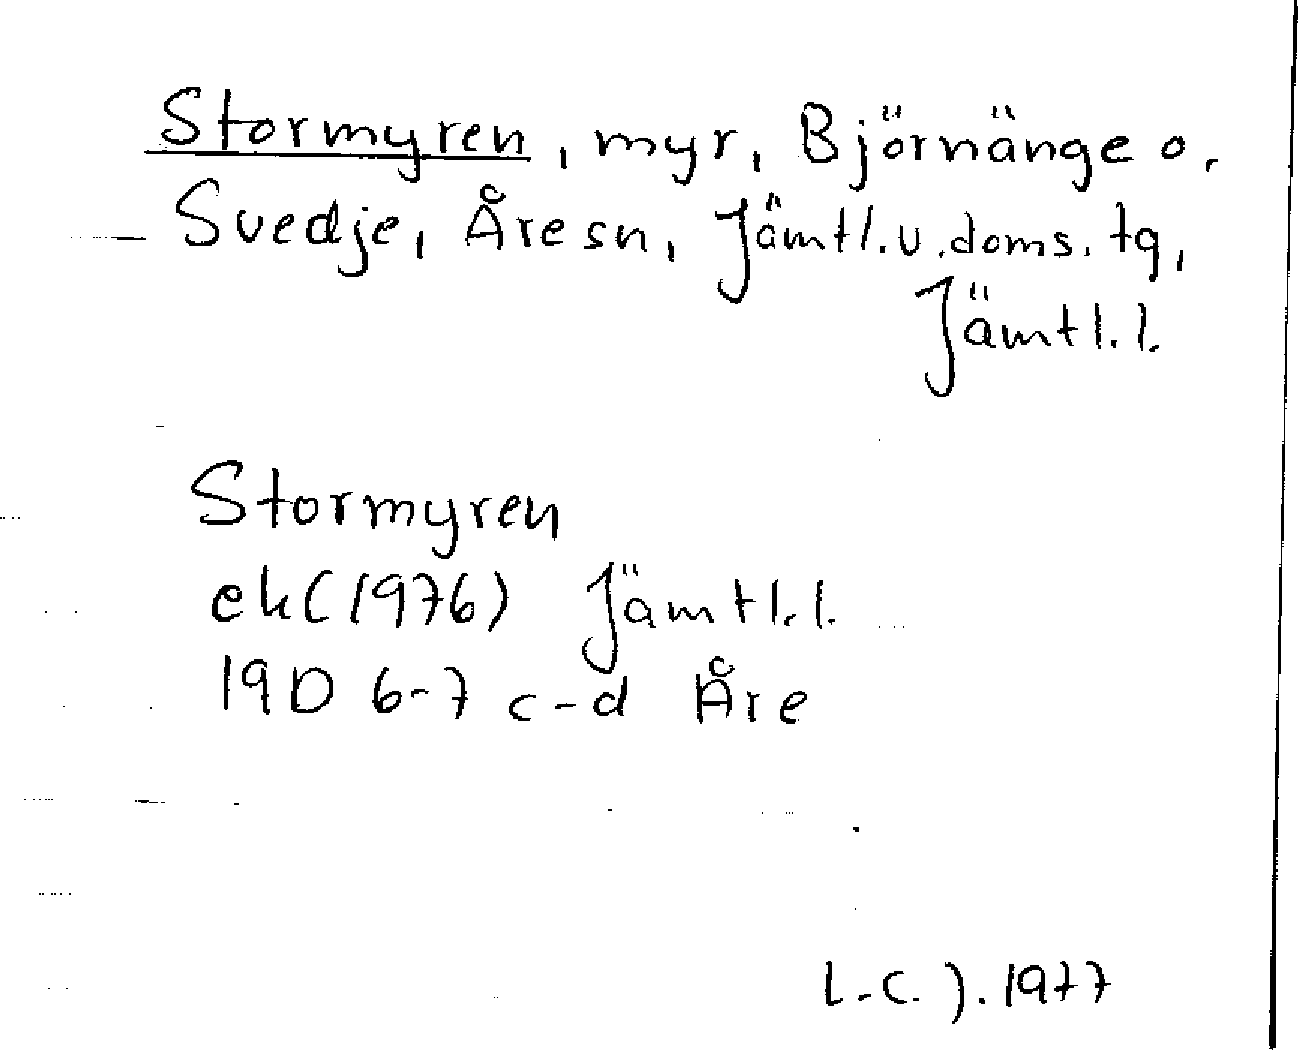 Stormyren, myr, Björnänge o.
Svedje, Åre sn, Jämtl. v. doms. tg,
Jämtl. l.
Stormyren
ek (1976) Jämtl. l.
19D 6-7 c-d Åre
L-C. J. 1977